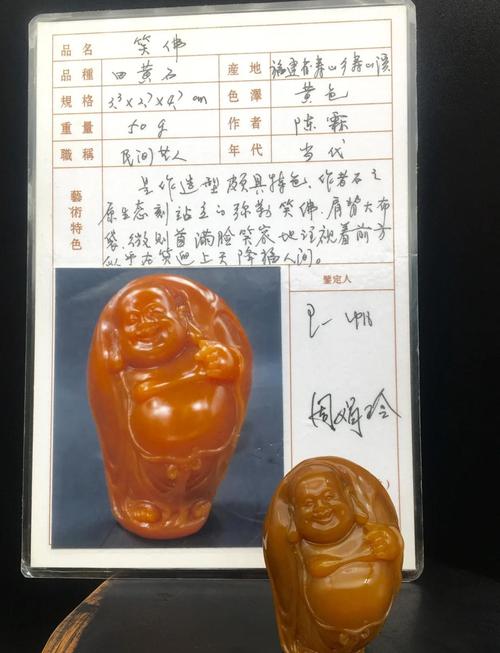 品名 笑佛
品種 田黄石 産地 福建省寿山乡寿山溪
規格 3.3×2.7×4.7 cm 色澤 黄色
重量 50g 作者 陈霖
職稱 民间艺人 年代 当代
藝術特色
是作造型颇具特色、作者石之
原生态刻站立的弥勒笑佛,肩背大布
袋,微则首满脸笑容地注视着前方
似乎在笑迎上天降福人间。
鑒定人
周娟玲